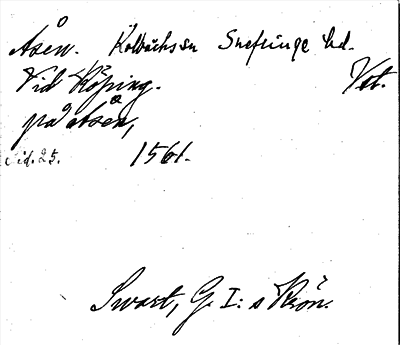 Åsen. Kolbäcks sn Snefringe hd.
Vid Köping. Vst.
på åsen,
sid. 25. 1561.
Swart, G. I:s Krön.